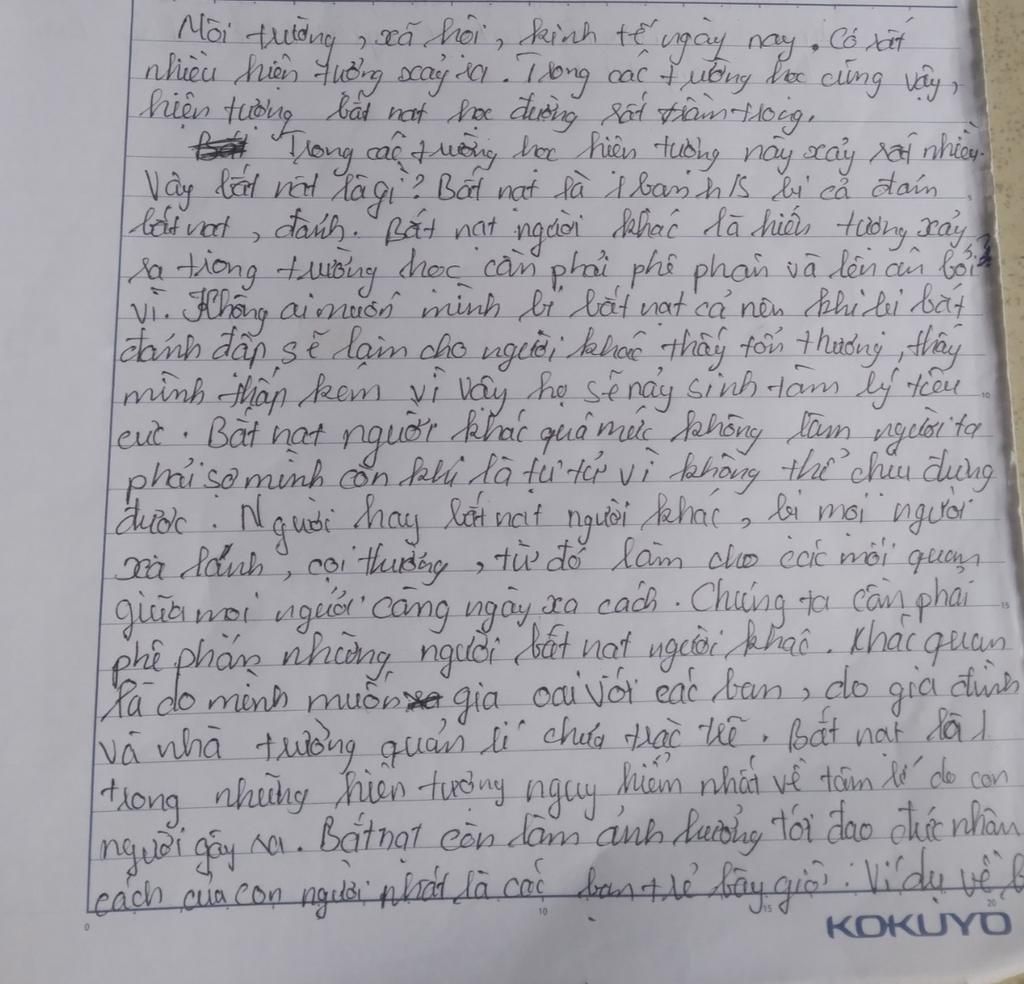 Môi tường, xã hội, kinh tế ngày nay. Có rất
nhiều hiện tượng xảy ra. Trong các tường học cũng vậy,
hiện tượng bắt nạt học đường rất trầm trọng.
Trong các trường học hiện tượng này xảy rất nhiều.
Vậy bắt nạt là gì? Bắt nạt là 1 bạn h/s bị cả đám
bắt nạt, đánh. Bắt nạt người khác là hiện tượng xảy
ra trong trường học cần phải phê phán và lên án bởi
vì. Không ai muốn mình bị bắt nạt cả nên khi bị bắt
đánh đập sẽ làm cho người khác thấy tổn thương, thấy
mình thấp kém vì vậy họ sẽ nảy sinh tâm lý tiêu
cực. Bắt nạt người khác quá mức không làm người ta
phải sợ mình còn khi là tự tử vì không thể chịu đựng
được. Người hay bắt nạt người khác, bị mọi người
xa lánh, coi thường, từ đó làm cho các mối quan
giữa mọi người càng ngày xa cách. Chúng ta cần phải
phê phán những người bắt nạt người khác. Khác quan
là do mình muốn gia oai với các bạn, do gia đình
và nhà trường quản lí chưa trặc trẽ. Bắt nạt là 1
trong những hiện tượng nguy hiểm nhất về tâm lí do con
người gây ra. Bắt nạt còn làm ảnh hưởng tới đạo đức nhân
cách của con người nhất là các bạn trẻ bây giờ. Ví dụ về b
KOKUYO